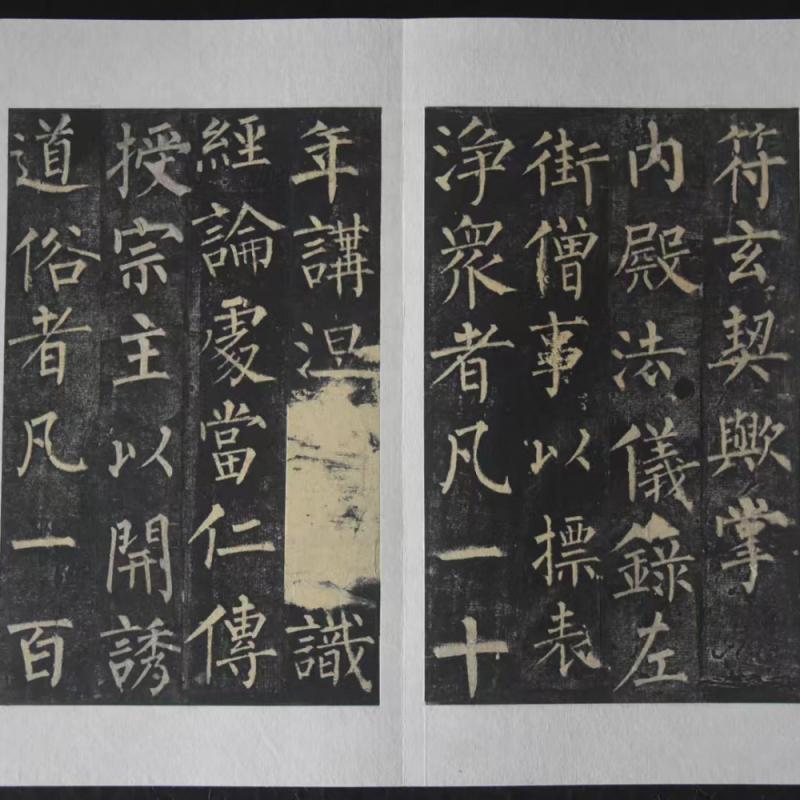 符玄契歟掌
内殿法儀錄左
街僧事以摽表
浄衆者凡一十
年講涅識
經論處當仁傳
授宗主以開誘
道俗者凡一百